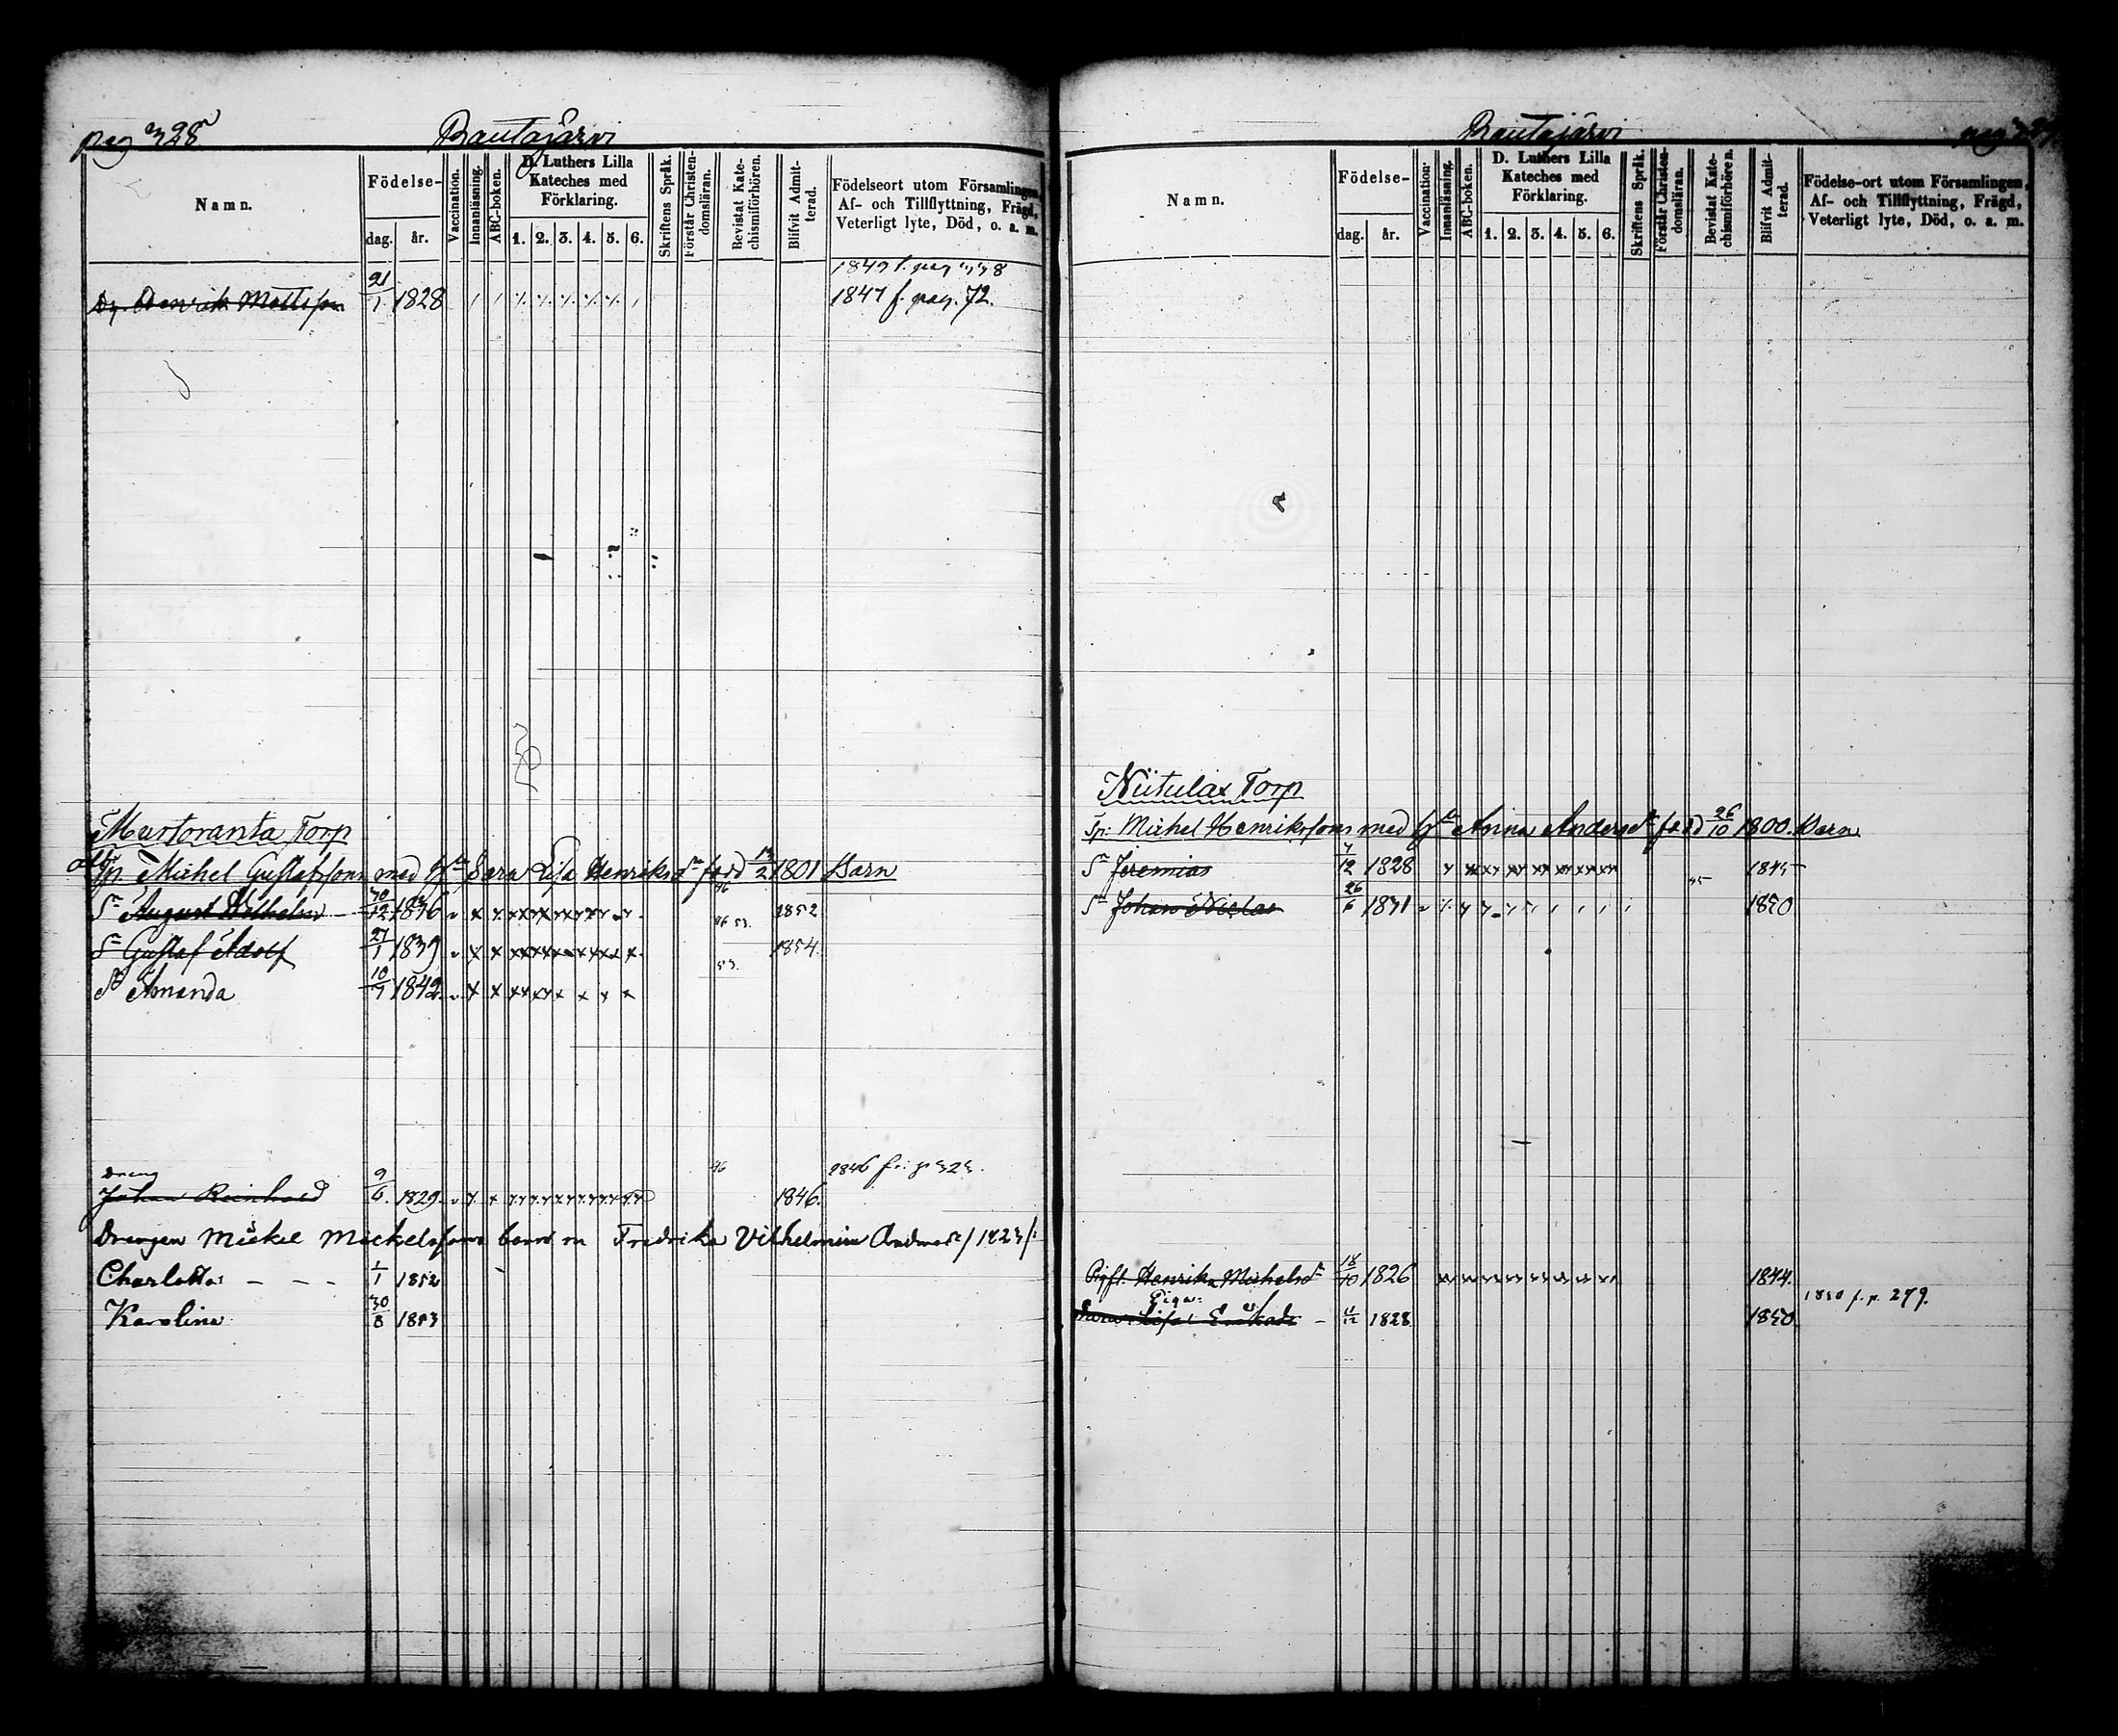 pag 328
Rautajärvi
Namn.
Födelse-
dag.
år.
Vaccination.
Innanläsning.
ABC-boken.
D. Luthers Lilla
Kateches med
Förklaring.
1. 2. 3. 4. 5. 6.
Skriftens Språk.
Förstår Christen-
domsläran.
Bevistat Kate-
chismiförhören.
Blifvit Admit-
terad.
Födelseort utom Församlingen,
Af- och Tillflyttning, Frägd,
Veterligt lyte, Död, o. a. m.
Dr. Henrik Mattsson 21/1 1828 1847 f. pag. 72.
Murtoranta Torp
Michel Gustafssons med Hu Sara Lisa Henriksdr född 1801 Barn
Sn August Wilhelm 1836 1852
46 53.
Sn Gustaf Adolf 27/1 1839 1854.
53.
Amanda 10/7 1842
Dreng 46 1846 fr. p 323.
Johan Reinhold 9/6. 1829 1846.
Drengen Mickel Mickelssons barn m Fredrika Vilhelmina
Charlotta 1/1 1852
Karolina 30/8 1853
Rautajärvi
Namn.
Födelse-
dag.
år.
Vaccination.
Innanläsning.
ABC-boken.
D. Luthers Lilla
Kateches med
Förklaring.
1. 2. 3. 4. 5. 6.
Skriftens Språk.
Förstår Christen-
domsläran.
Bevistat Kate-
chismiförhören.
Blifvit Admit-
terad.
Födelse-ort utom Församlingen,
Af- och Tillflyttning, Frägd,
Veterligt lyte, Död, o. a. m.
Niitulax Torp
Sp: Michel Henrikssons med Anna Andersdr född 26/10 1800. Barn
Sn Jeremias 1828 1845
Sn Johan Niclas 26/6 1831 1850
Henrika Michelsdr 1826 1844.
Piga: 1850 f. p. 279.
Lisa 1828 1850